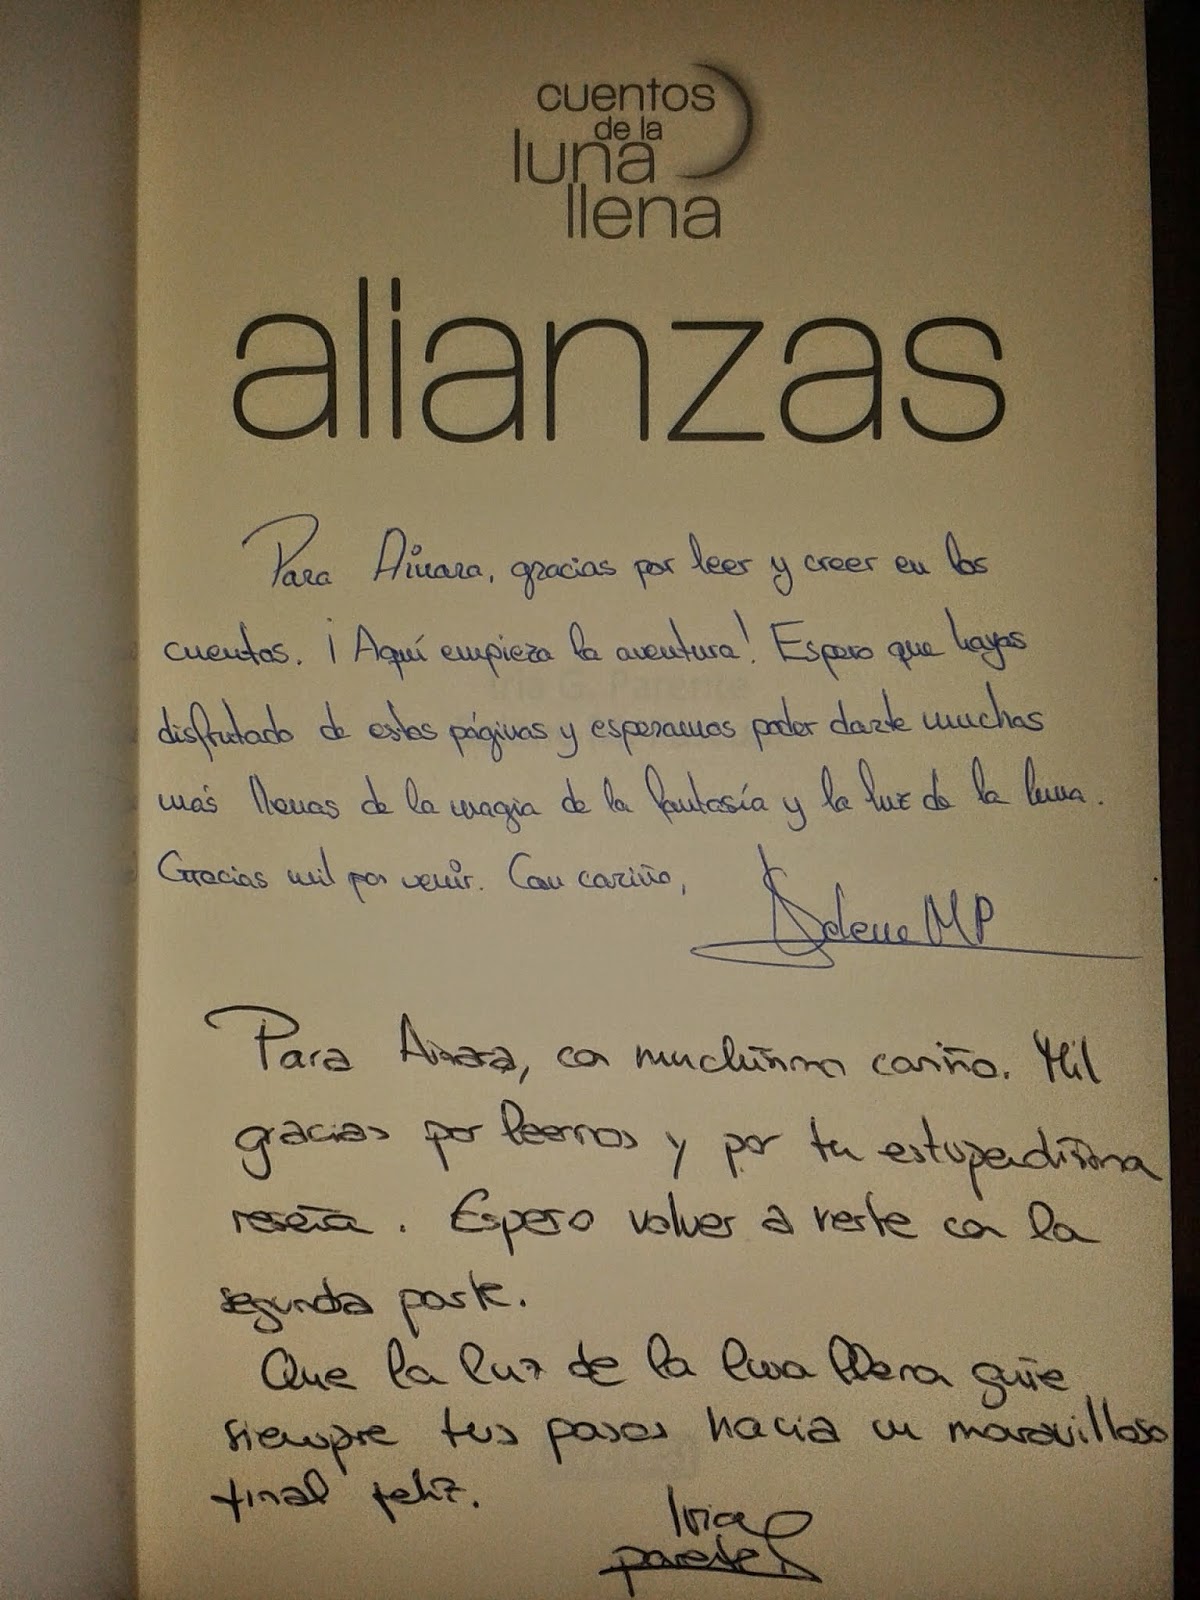 cuentos
de la
luna
llena
alianzas
Para Ainara, gracias por leer y creer en los
cuentos. ¡Aquí empieza la aventura! Espero que hayas
disfrutado de estas páginas y esperamos poder darte muchas
más llenas de la magia de la fantasía y la luz de la luna.
Gracias mil por venir. Con cariño,
Selene MP
Iria G. Parente
Para Ainara, con muchísimo cariño. Mil
gracias por leernos y por tu estupendísima
reseña. Espero volver a verte con la
segunda parte.
Que la luz de la luna llena guíe
siempre tus pasos hacia un maravilloso
final feliz.
Iria
Parente